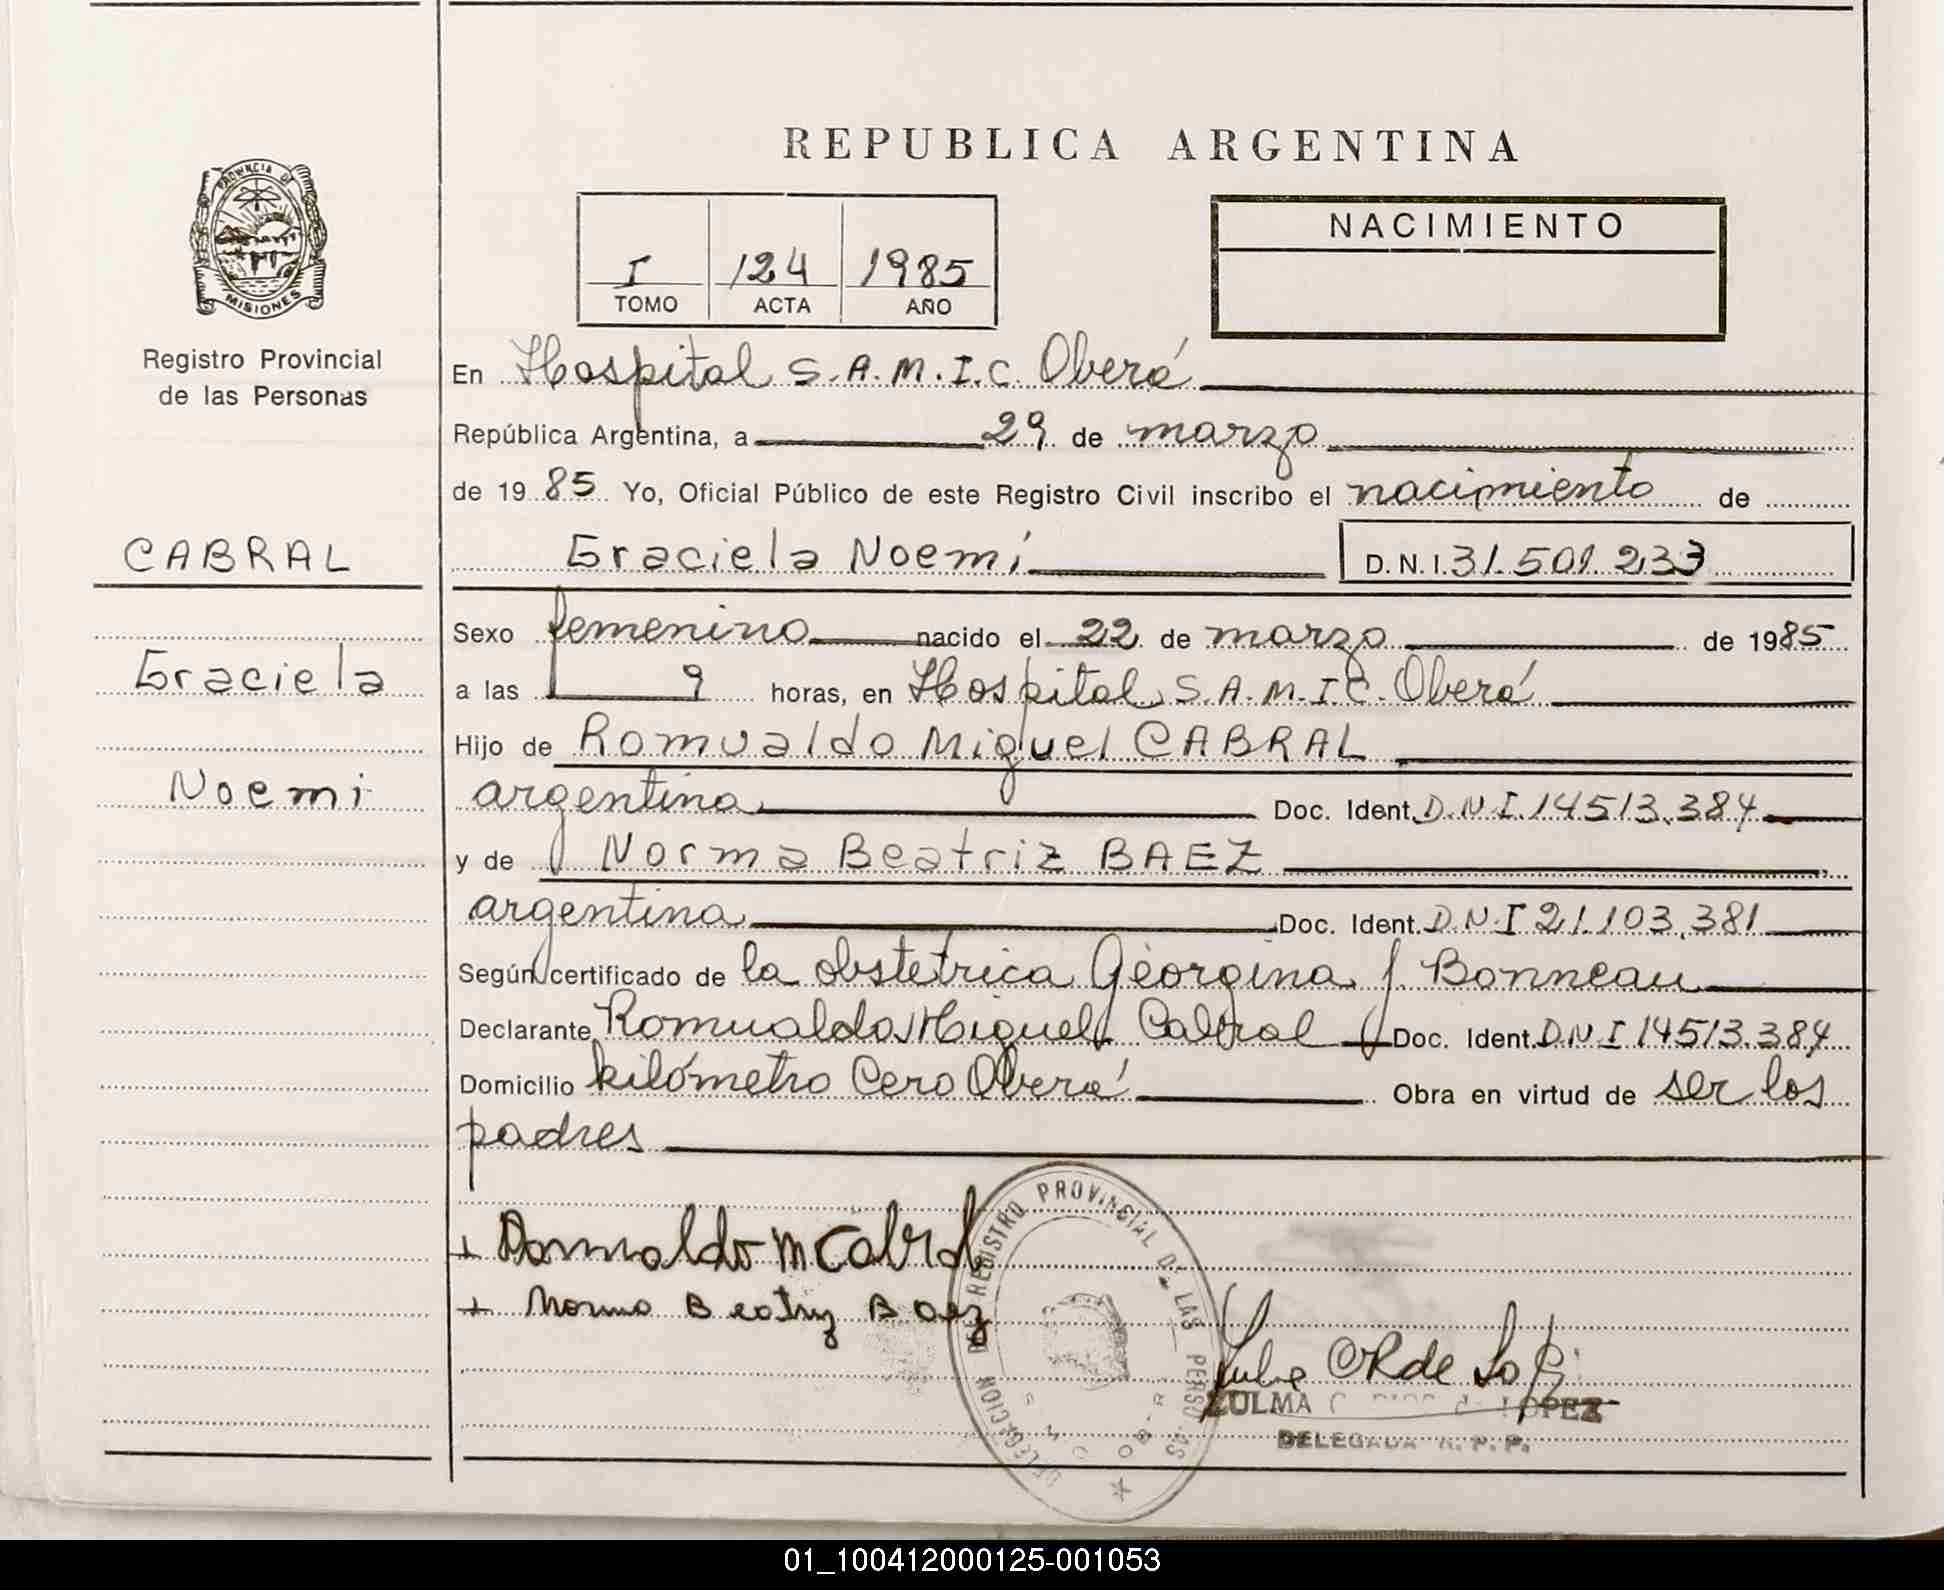 REPUBLICA ARGENTINA
PROVINCIA DE
MISIONES
Registro Provincial
de las Personas
I 124 1985
TOMO ACTA AÑO
NACIMIENTO
En Hospital S.A.M.I.C. Oberá
República Argentina, a 29 de marzo
de 1985 Yo, Oficial Público de este Registro Civil inscribo el nacimiento de
CABRAL
Graciela Noemí D.N.I. 31.501.233
Sexo femenino nacido el 22 de marzo de 1985
Graciela
a las 9 horas, en Hospital S.A.M.I.C. Oberá
Hijo de Romualdo Miguel CABRAL
Noemi
argentina Doc. Ident. D.N.I. 14513.384
y de Norma Beatriz BAEZ
argentina Doc. Ident. D.N.I 21.103.381
Según certificado de la obstetrica Georgina J. Bonneau
Declarante Romualdo Miguel Cabral Doc. Ident. D.N.I 14513.384
Domicilio kilómetro Cero Oberá Obra en virtud de ser los
padres
Romualdo M Cabral
Norma Beatriz Baez
DELEGACION DEL REGISTRO PROVINCIAL DE LAS PERSONAS
ZULMA de LOPEZ
DELEGADA R. P. P.
01_100412000125-001053